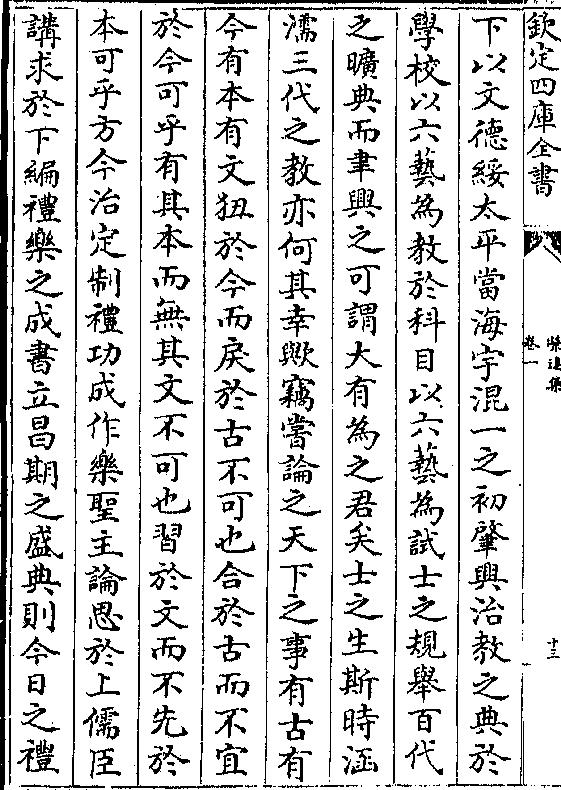 欽定四庫全書
卷一
十三
下以文德綏太平當海宇混一之初肇興治教之典於
學校以六藝為教於科目以六藝為試士之規舉百代
之曠典而聿興之可謂大有為之君矣士之生斯時涵
濡三代之教亦何其幸歟竊嘗論之天下之事有古有
今有本有文狃於今而戾於古不可也合於古而不宜
於今可乎有其本而無其文不可也習於文而不先於
本可乎方今治定制禮功成作樂聖主論思於上儒臣
講求於下編禮樂之成書立昌期之盛典則今日之禮